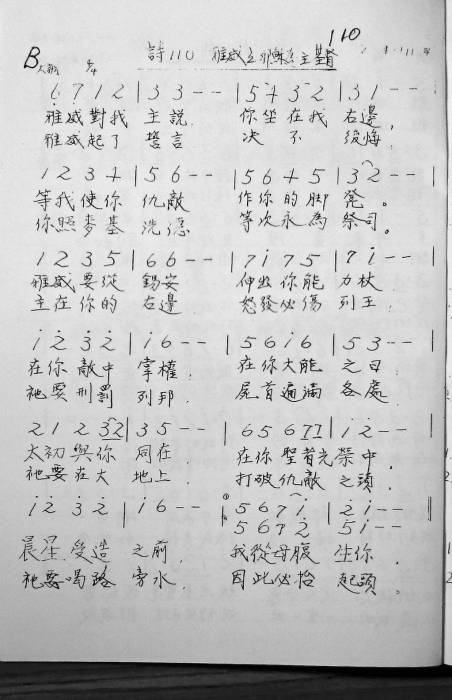 110
詩110 雅威立耶穌為主基督
B大調 4/4
6 7 1 2 | 3 3 - - | 5 4 3 2 | 3 1 - - |
雅威對我 主說 你坐在我 右邊,
雅威起了 誓言 決不 後悔,
1 2 3 4 | 5 6 - - | 5 6 4 5 | 3 2 - - |
等我使你 仇敵 作你的脚 凳。
你照麥基 洗德 等次永為 祭司。
1 2 3 5 | 6 6 - - | 7 i 7 5 | 7 i - - |
雅威要從 錫安 伸出你能 力杖
主在你的 右邊 怒發必傷 列王
i 2 3 2 | i 6 - - | 5 6 i 6 | 5 3 - - |
在你敵中 掌權. 在你大能 之日
祂要刑罰 列邦. 屍首遍滿 各處
2 1 2 32 | 3 5 - - | 6 5 6 77 | i 2 - - |
太初與你 同在 在你聖者光榮中,
祂要在大 地上. 打破仇敵 之頭.
i 2 3 2 | i 6 - - | 5 6 7 i | 2 i - - ||
5 6 7 2 5 i - -
晨星受造 之前, 我從母腹 生你.
祂要喝路 旁水. 因此必抬 起頭。